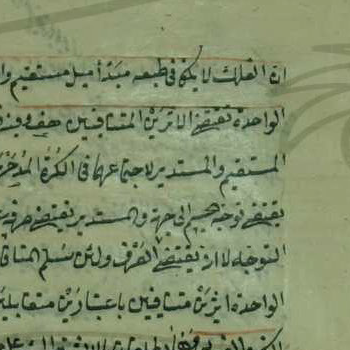 ان الفلك لا يكون في طبعه مبدأ ميل مستقيم وا
الواحدة تقتضي الاثرين المتنافيين هف وفيه
المستقيم والمستدير لاجتماعهما في الكرة المدحرجة
يقتضي توجه جسم الى جهة والمستدير يقتضي صرفه
التوجه لا انه يقتضي الصرف ولئن سلم المنافا
الواحدة اثرين متنافيين باعتبارين متقابلين